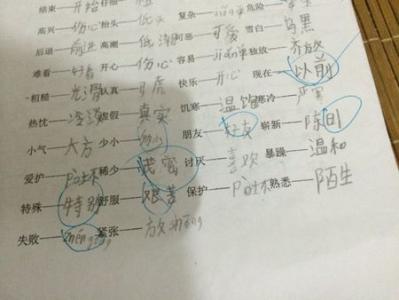 结束——开始 仔细
高兴——伤心 抬头——低头 复杂—— 危险——
后退——前进 高潮——低潮 可恶——可爱 雪白——乌黑
难看——好看 开心——伤心 容易—— 独放——齐放
粗糙——光滑 认真—— 快乐——开心 现在——以前
热忱——冷漠 虚假——真实 饥寒——温饱 寒冷——
小气——大方 少小—— 朋友—— 崭新——陈旧
爱护——pò坏 稀少——茂密 讨厌——喜欢 暴躁——温和
特殊——特别 舒服——艰苦 保护——pò坏 熟悉——陌生
失败——zhēnggōng 紧张——放